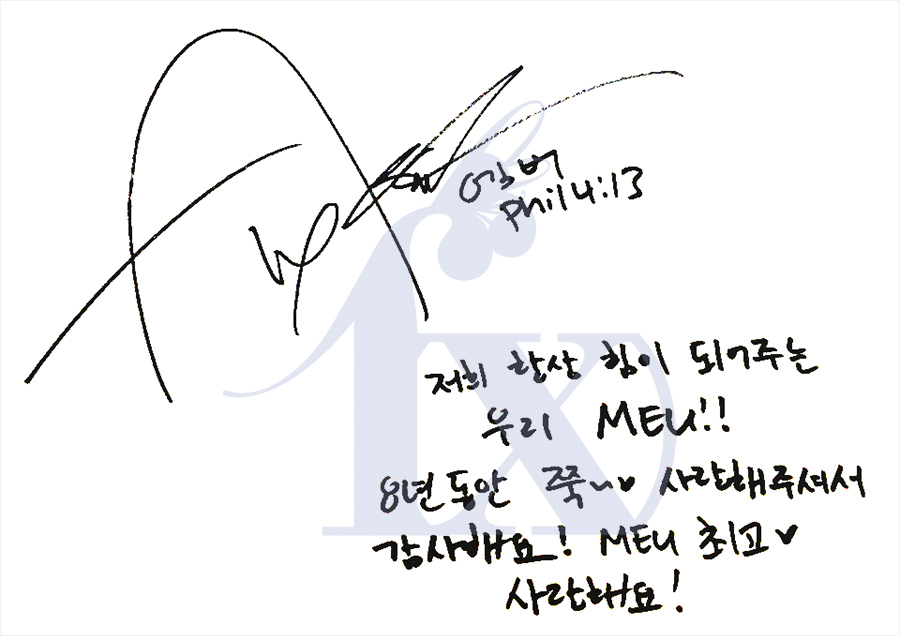 엠버
Phil 4:13
fx
저희 항상 힘이 되어주는
우리 MEU!!
8년동안 쭉~♥ 사랑해주셔서
감사해요! MEU 최고♥
사랑해요!